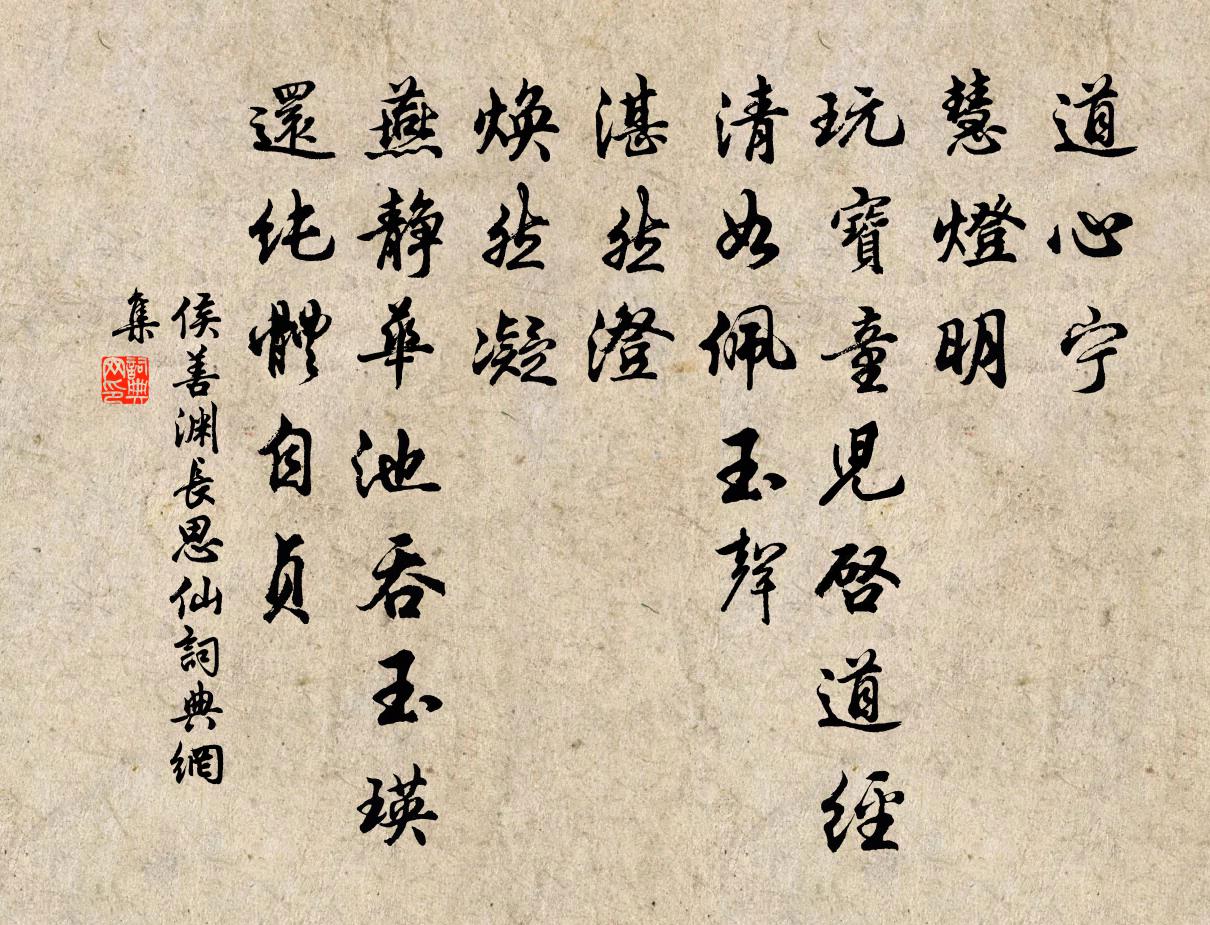 道心宁
慧燈明
玩寶童兒啓道經
清如佩玉聲
湛然澄
煥然凝
燕靜華池吞玉瑛
還純體自貞
侯善渊長思仙詞典網
集
詞典网印